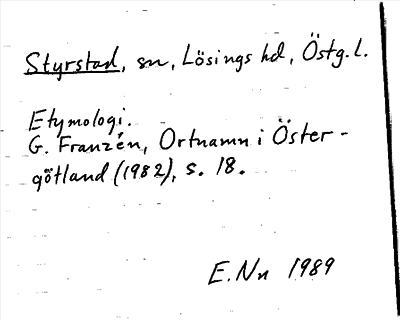 Styrstad, sn, Lösings hd, Östg. l.
Etymologi.
G. Franzén, Ortnamn i Öster-
götland (1982), s. 18.
E. Nn 1989